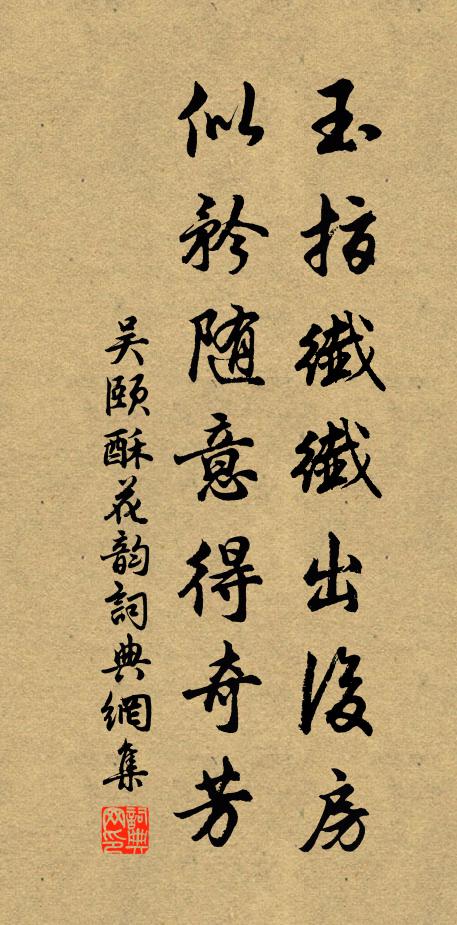 玉指纖纖出後房
似矜随意得奇芳
吴頤酥花韵詞典網集
詞典网印